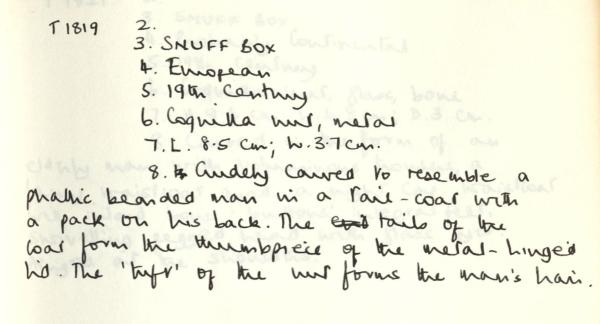 T1819 2.
3. SNUFF BOX
4. European
5. 19th Century
6. Coquilla nut, metal
7. L. 8.5 cm; W. 3.7 cm.
8. Crudely carved to resemble a
phallic bearded man in a tail-coat with
a pack on his back. The tails of the
coat form the thumbpiece of the metal-hinged
lid. The 'tuft' of the nut forms the man's hair.